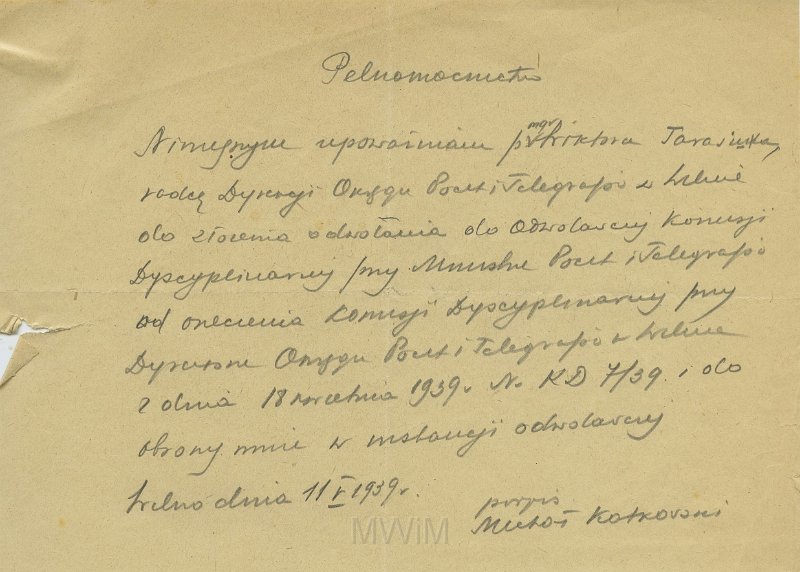 Pełnomocnictwo
Niniejszym upoważniam p. mgr Wiktora Tarasiuka,
radcę Dyrekcji Okręgu Poczt i Telegrafów w Wilnie
do złożenia odwołania do Odwoławczej Komisji
Dyscyplinarnej przy Ministrze Poczt i Telegrafów
od orzeczenia Komisji Dyscyplinarnej przy
Dyrektorze Okręgu Poczt i Telegrafów w Wilnie
z dnia 18 kwietnia 1939 r. No KD 7/39 i do
obrony mnie w instancji odwoławczej
Wilno dnia 11 V 1939 r.
podpis
Kotkowski
MWiM